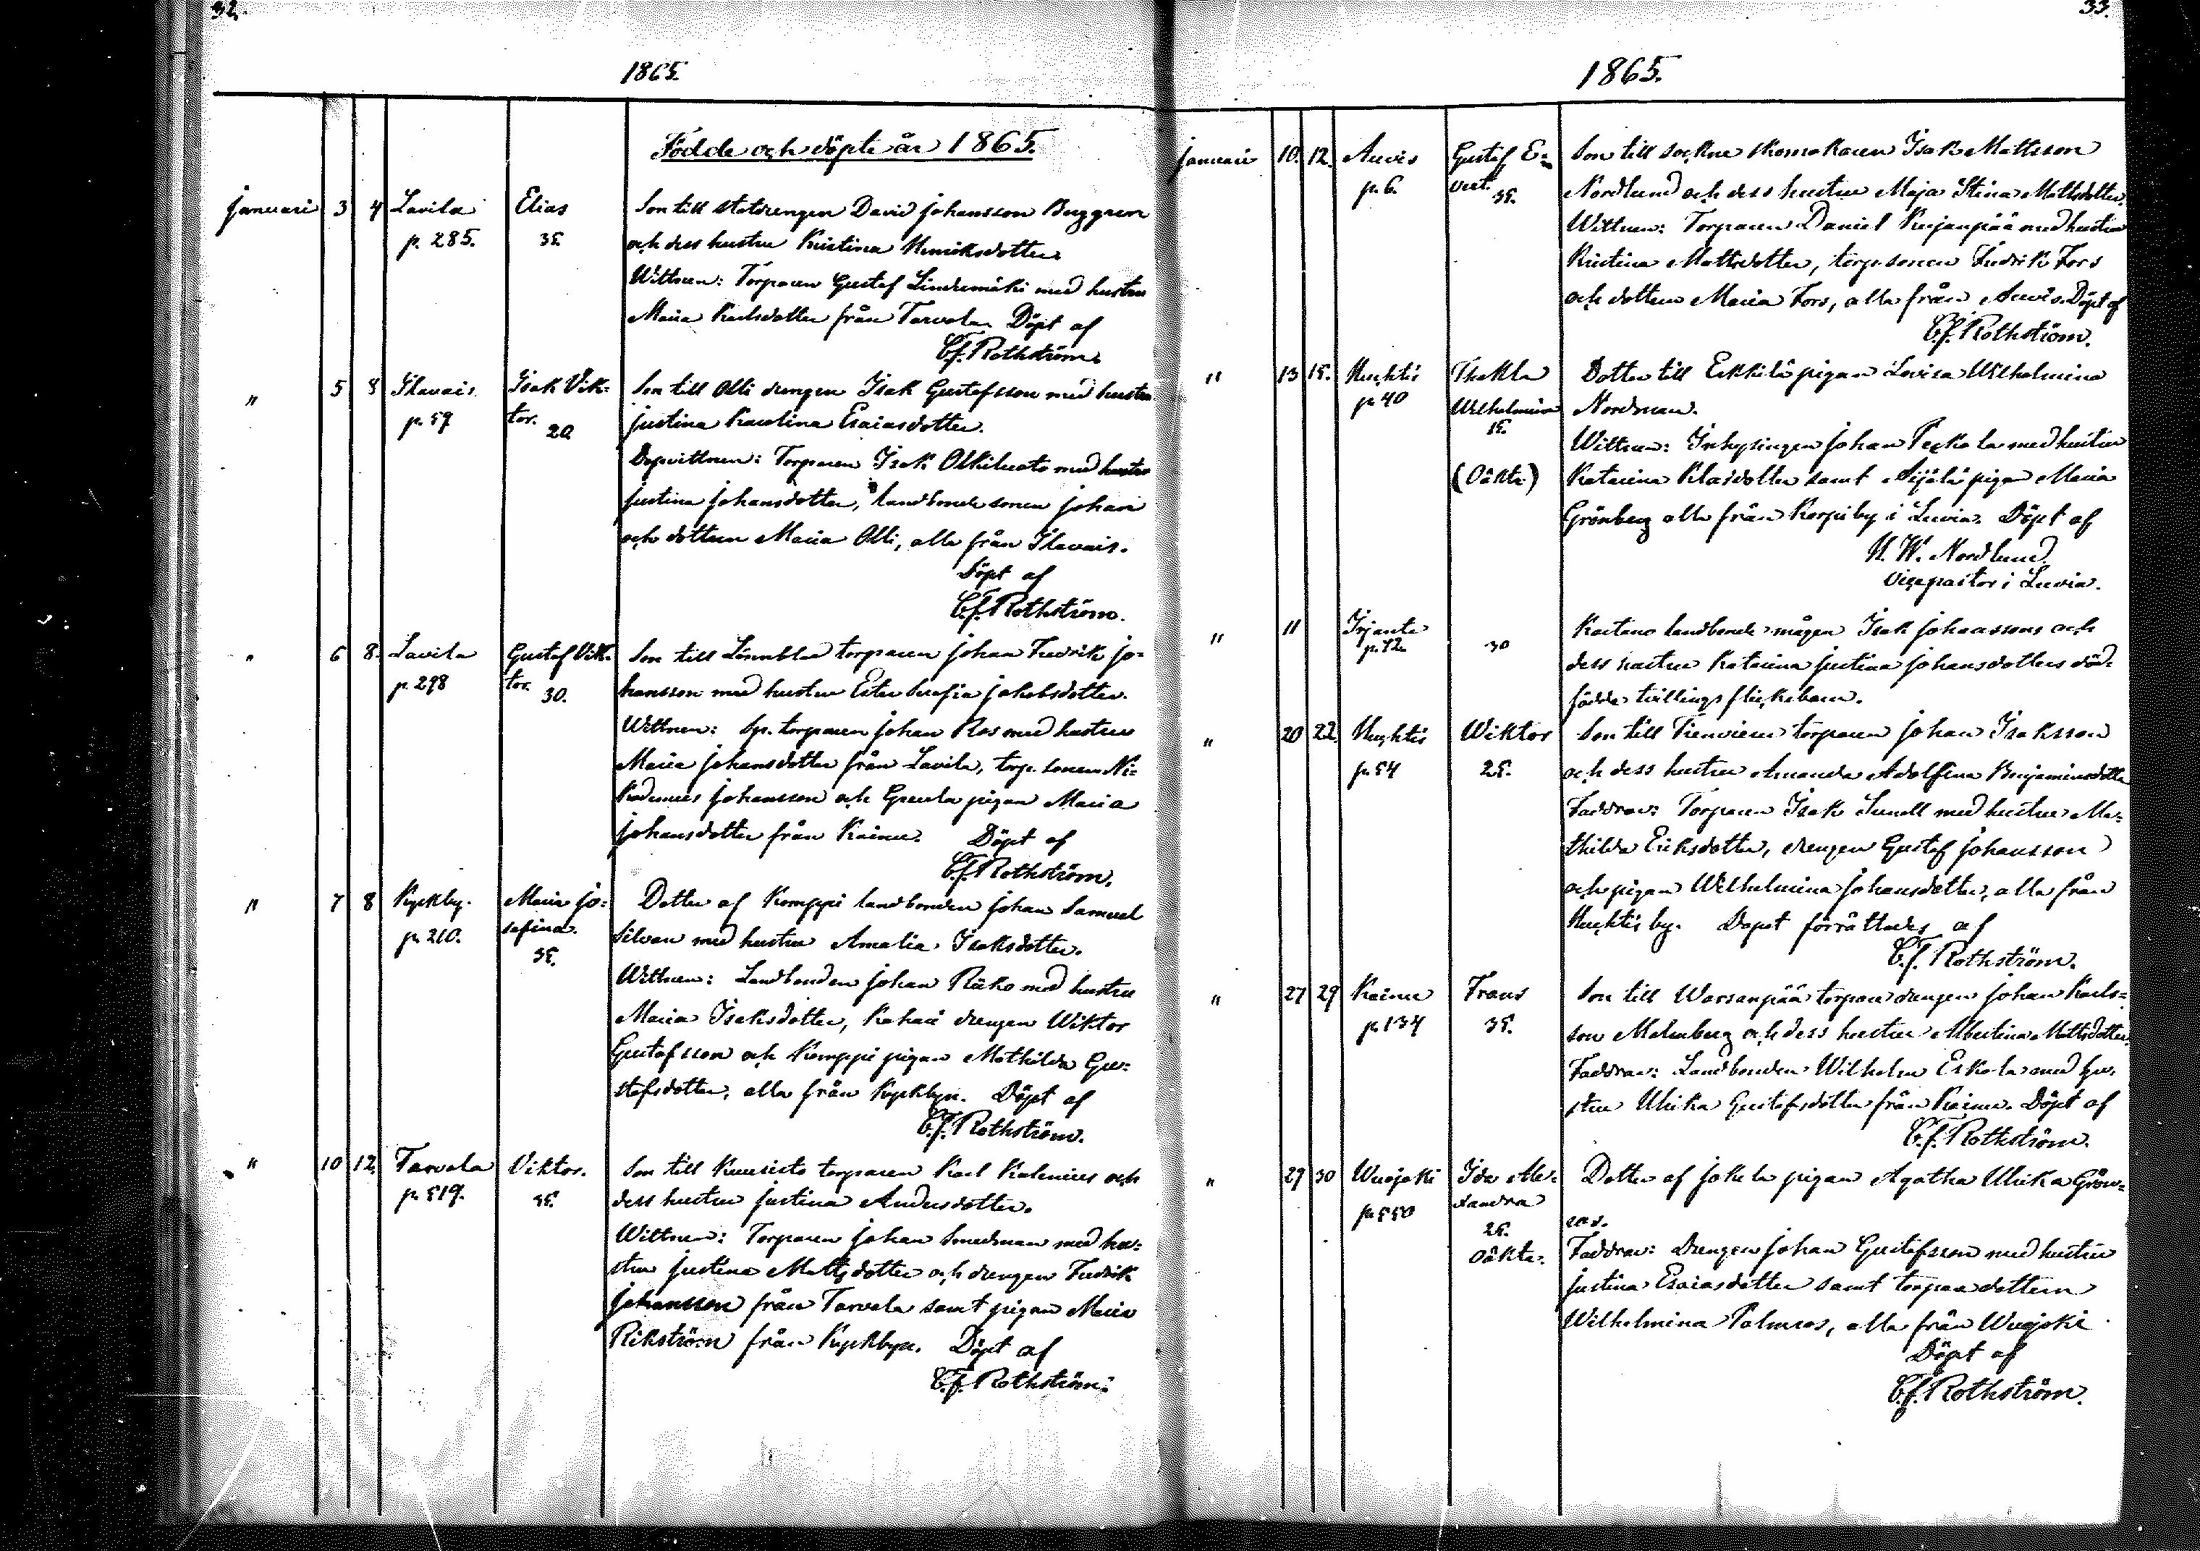 32.
1865.
Födde och döpte år 1865.
Januari 3 4 Lavila Elias Son till statdrengen David Johansson Buggren
p. 285. 35. och dess hustru Kristina Henriksdotter.
Wittnen: Torparen Gustaf Lindemäki med hustru
Maria Karlsdotter från Tarvola. Döpt af
C.J. Rothström.
" 5 8 Ilavais Isak Vik- Son till Olli drengen Isak Gustafsson med hustru
p. 57 tor. 20 Justina Karolina Esaiasdotter.
Dopvittnen: Torparen Isak Olkiluoto med hustru
Justina Johansdotter, landbonde sonen Johan
och dottern Maria Olli, alla från Ilavais.
Döpt af
C.J. Rothström.
" 6 8. Lavila Gustaf Vik- Son till Lönnblad torparen Johan Fredrik Jo-
p. 298 tor. 30. hansson med hustru Ester Serafia Jakobsdotter.
Wittnen: Sp. torparen Johan Ros med hustru
Maria Johansdotter från Lavila, torp. sonen Ni-
kodemus Johansson och Greula pigan Maria
Johansdotter från Kainu. Döpt af
C.J. Rothström.
" 7 8 Kyrkby. Maria Jo- Dotter af Komppi landbonden Johan Samuel
p. 210. sefina. 35. Silvan med hustru Amalia Isaksdotter.
Wittnen: Landbonden Johan Räko med hustru
Maria Isaksdotter, Kahari drengen Wiktor
Gustafsson och Komppi pigan Mathilda Gu-
stafsdotter, alla från Kyrkbyn. Döpt af
C.J. Rothström.
" 10 12. Tarvola Viktor. Son till Kuuristo torparen Karl Kalenius och
p. 519. 35. dess hustru Justina Andersdotter.
Wittnen: Torparen Johan Smedman med hu-
stru Justina Mattsdotter och drengen Fredrik
Johansson från Tarvola samt pigan Maria
Rikström från Kyrkbyn. Döpt af
C.J. Rothström.
33.
1865.
Januari 10. 12. Auvis Gustaf E- Son till sockne skomakaren Isak Mattsson
p. 6. vert. 35. Nordlund och dess hustru Maja Stina Mattsdotter.
Wittnen: Torparen Daniel Kujanpää med hustru
Kristina Mattsdotter, torp. sonen Fredrik Fors
och dottern Maria Fors, alla från Auvis. Döpt af
C.J. Rothström.
" 13 15. Huhtis Thekla Dotter till Erkkilä pigan Lovisa Wilhelmina
p. 40 Wilhelmina Nordman.
15. Wittnen: Inhysingen Johan Peckola med hustru
(Oäkta) Katarina Klasdotter samt Äijälä pigan Maria
Grönberg alla från Korpiby i Luvia. Döpt af
H. W. Nordlund.
Vicepastor i Luvia.
" 11 Irjanta Kaitano landbonde mågen Isak Johanssons och
p. 72. 30 dess hustru Katarina Justina Johansdotters död-
födda tvillings flickebarn.
" 20 22. Huhtis Wiktor Son till Tienvieri torparen Johan Isaksson
p. 54 25. och dess hustru Amanda Adolfina Benjaminsdotter
Faddrar: Torparen Isak Sunell med hustru Ma-
thilda Eriksdotter, drengen Gustaf Johansson
och pigan Wilhelmina Johansdotter, alla från
Huhtis by. Dopet förrättades af
C.J. Rothström.
" 27 29 Kainu Frans Son till Warsanpää torpare drengen Johan Karls-
p. 134 35. son Malmberg och dess hustru Albertina Mattsdotter.
Faddrar: Landbonden Wilhelm Eskola med hu-
stru Ulrika Gustafsdotter från Kainu. Döpt af
C.J. Rothström.
" 29 30 Wuojoki Ida Ale- Dotter af Jokela pigan Agatha Ulrika Grön-
p. 550 xandra roos.
25. Faddrar: Drengen Johan Gustafsson med hustru
Oäkta. Justina Esaiasdotter samt torpare dottern
Wilhelmina Palmros, alla från Wuojoki
Döpt af
C.J. Rothström.